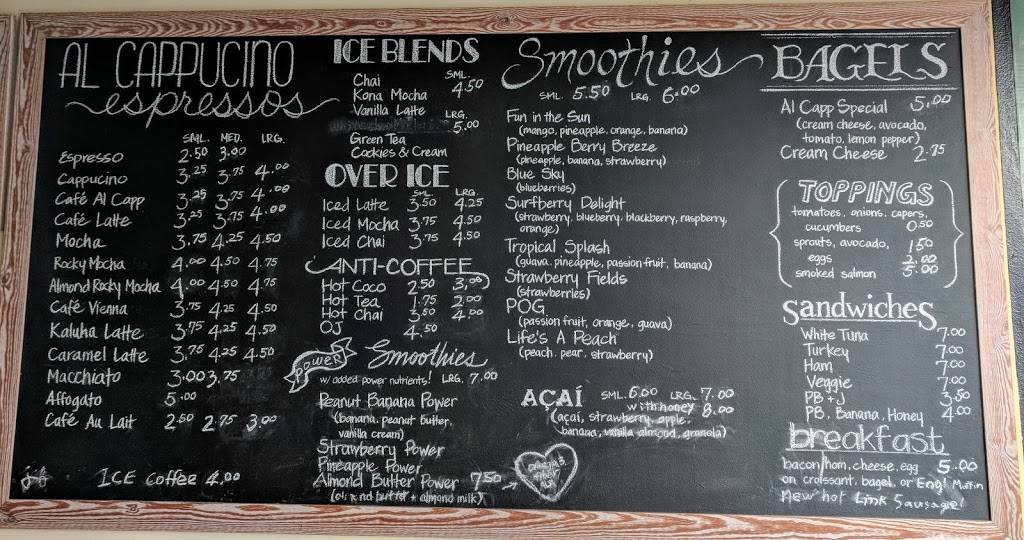 AL CAPPUCINO
espressos
SML. MED. LRG.
Espresso 2.50 3.00
Cappucino 3.25 3.75 4.00
Café Al Capp 3.25 3.75 4.00
Café Latte 3.25 3.75 4.00
Mocha 3.75 4.25 4.50
Rocky Mocha 4.00 4.50 4.75
Almond Rocky Mocha 4.00 4.50 4.75
Café Vienna 3.75 4.25 4.50
Kaluha Latte 3.75 4.25 4.50
Caramel Latte 3.75 4.25 4.50
Macchiato 3.00 3.75
Affogato 5.00
Café Au Lait 2.50 2.75 3.00
ICE coffee 4.00
ICE BLENDS
SML.
Chai 4.50
Kona Mocha
Vanilla Latte
LRG.
5.00
Green Tea
Cookies & Cream
OVER ICE
SML. LRG.
Iced Latte 3.50 4.25
Iced Mocha 3.75 4.50
Iced Chai 3.75 4.50
ANTI-COFFEE
Hot Coco 2.50 3.00
Hot Tea 1.75 2.00
Hot Chai 3.50 4.00
OJ 4.50
POWER Smoothies
w/ added power nutrients! LRG. 7.00
Peanut Banana Power
(banana, peanut butter,
vanilla cream)
Strawberry Power
Pineapple Power
Almond Butter Power 7.50
butter + almond milk)
Smoothies
SML. 5.50 LRG. 6.00
Fun in the Sun
(mango, pineapple, orange, banana)
Pineapple Berry Breeze
(pineapple, banana, strawberry)
Blue Sky
(blueberries)
Surfberry Delight
(strawberry, blueberry, blackberry, raspberry,
orange)
Tropical Splash
(guava, pineapple, passion fruit, banana)
Strawberry Fields
(strawberries)
POG
(passion fruit, orange, guava)
Life's A Peach
(peach, pear, strawberry)
AÇAÍ SML. 6.00 LRG. 7.00
with honey 8.00
(açai, strawberry, apple,
banana, vanilla almond, granola)
omega 3
fiber
BAGELS
Al Capp Special 5.00
(cream cheese, avocado,
tomato, lemon pepper)
Cream Cheese 2.75
TOPPINGS
tomatoes, onions, capers,
cucumbers 0.50
sprouts, avocado, 1.50
eggs 2.00
smoked salmon 5.00
Sandwiches
White Tuna 7.00
Turkey 7.00
Ham 7.00
Veggie 7.00
PB + J 3.50
PB, Banana, Honey 4.00
breakfast
bacon/ham, cheese, egg 5.00
on croissant, bagel, or Engl Muffin
New hot Link Sausage!